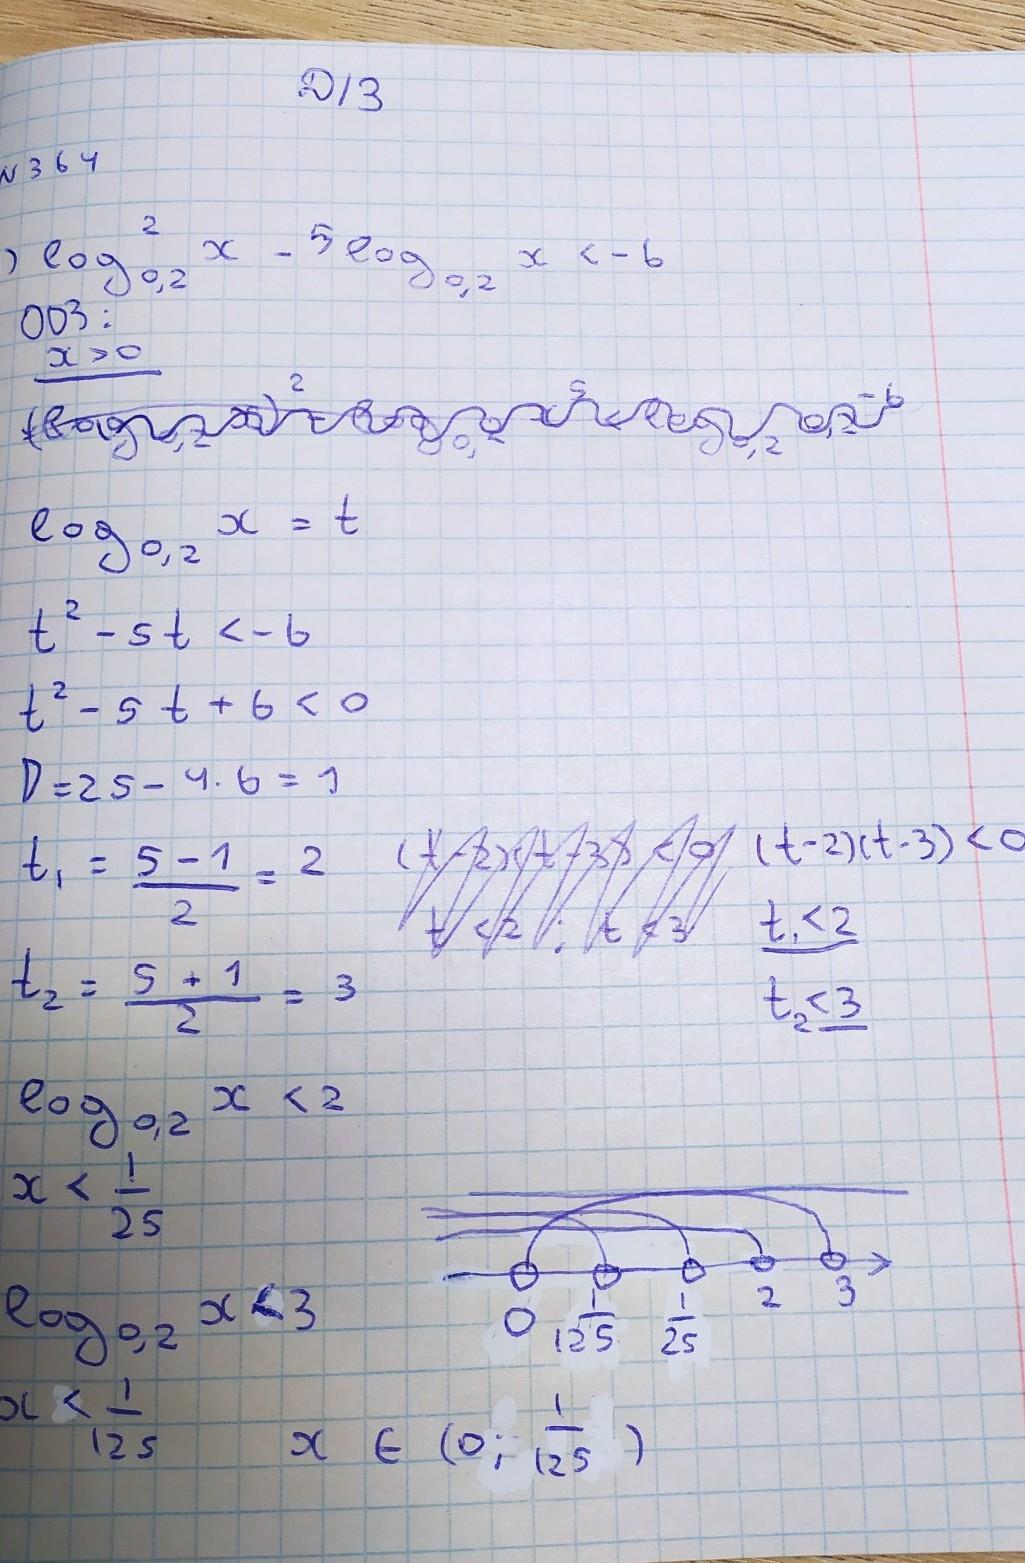 Д/З
N 364
) log²₀,₂ x - 5 log₀,₂ x < -6
ОДЗ:
x > 0
log₀,₂ x = t
t² - 5t < -6
t² - 5t + 6 < 0
D = 25 - 4·6 = 1
t₁ = (5 - 1)/2 = 2 (t-2)(t-3) < 0 (t-2)(t-3) < 0
t < 2 ; t < 3 t₁ < 2
t₂ = (5 + 1)/2 = 3 t₂ < 3
log₀,₂ x < 2
x < 1/25
log₀,₂ x < 3
0 1/125 1/25 2 3
x < 1/125 x ∈ (0; 1/125)